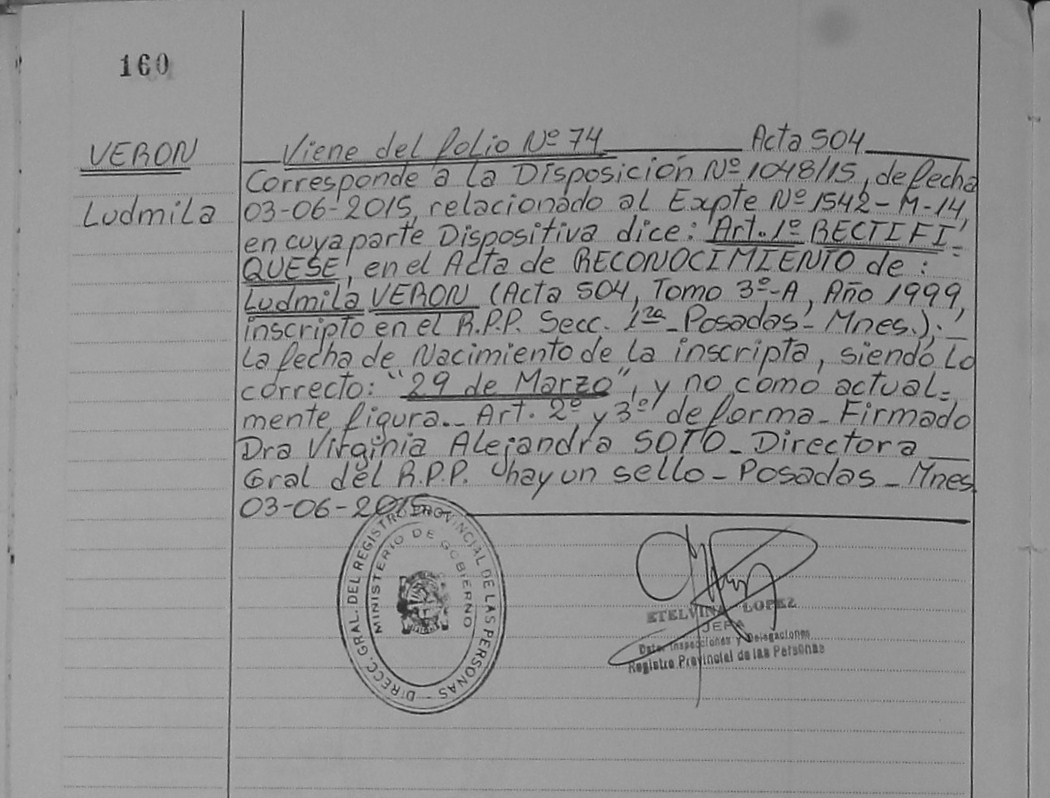 160
VERON
Ludmila
Viene del folio Nº 74 Acta 504
Corresponde a la Disposición Nº 1048/15, de fecha
03-06-2015, relacionado al Expte Nº 1542-M-14,
en cuya parte Dispositiva dice: Art. 1º RECTIFI-
QUESE, en el Acta de RECONOCIMIENTO de:
Ludmila VERON (Acta 504, Tomo 3º-A, Año 1999,
inscripto en el R.P.P. Secc. 1ra - Posadas - Mnes.).-
La fecha de Nacimiento de la inscripta, siendo lo
correcto: "29 de Marzo", y no como actual-
mente figura.- Art. 2º y 3º de forma - Firmado
Dra Virginia Alejandra SOTO - Directora
Gral del R.P.P. hay un sello - Posadas - Mnes
03-06-2015
DIRECC. GRAL. DEL REGISTRO PROVINCIAL DE LAS PERSONAS -
MINISTERIO DE GOBIERNO
ETELVINA LOPEZ
JEFA
Dpto. Inspecciones y Delegaciones
Registro Provincial de las Personas